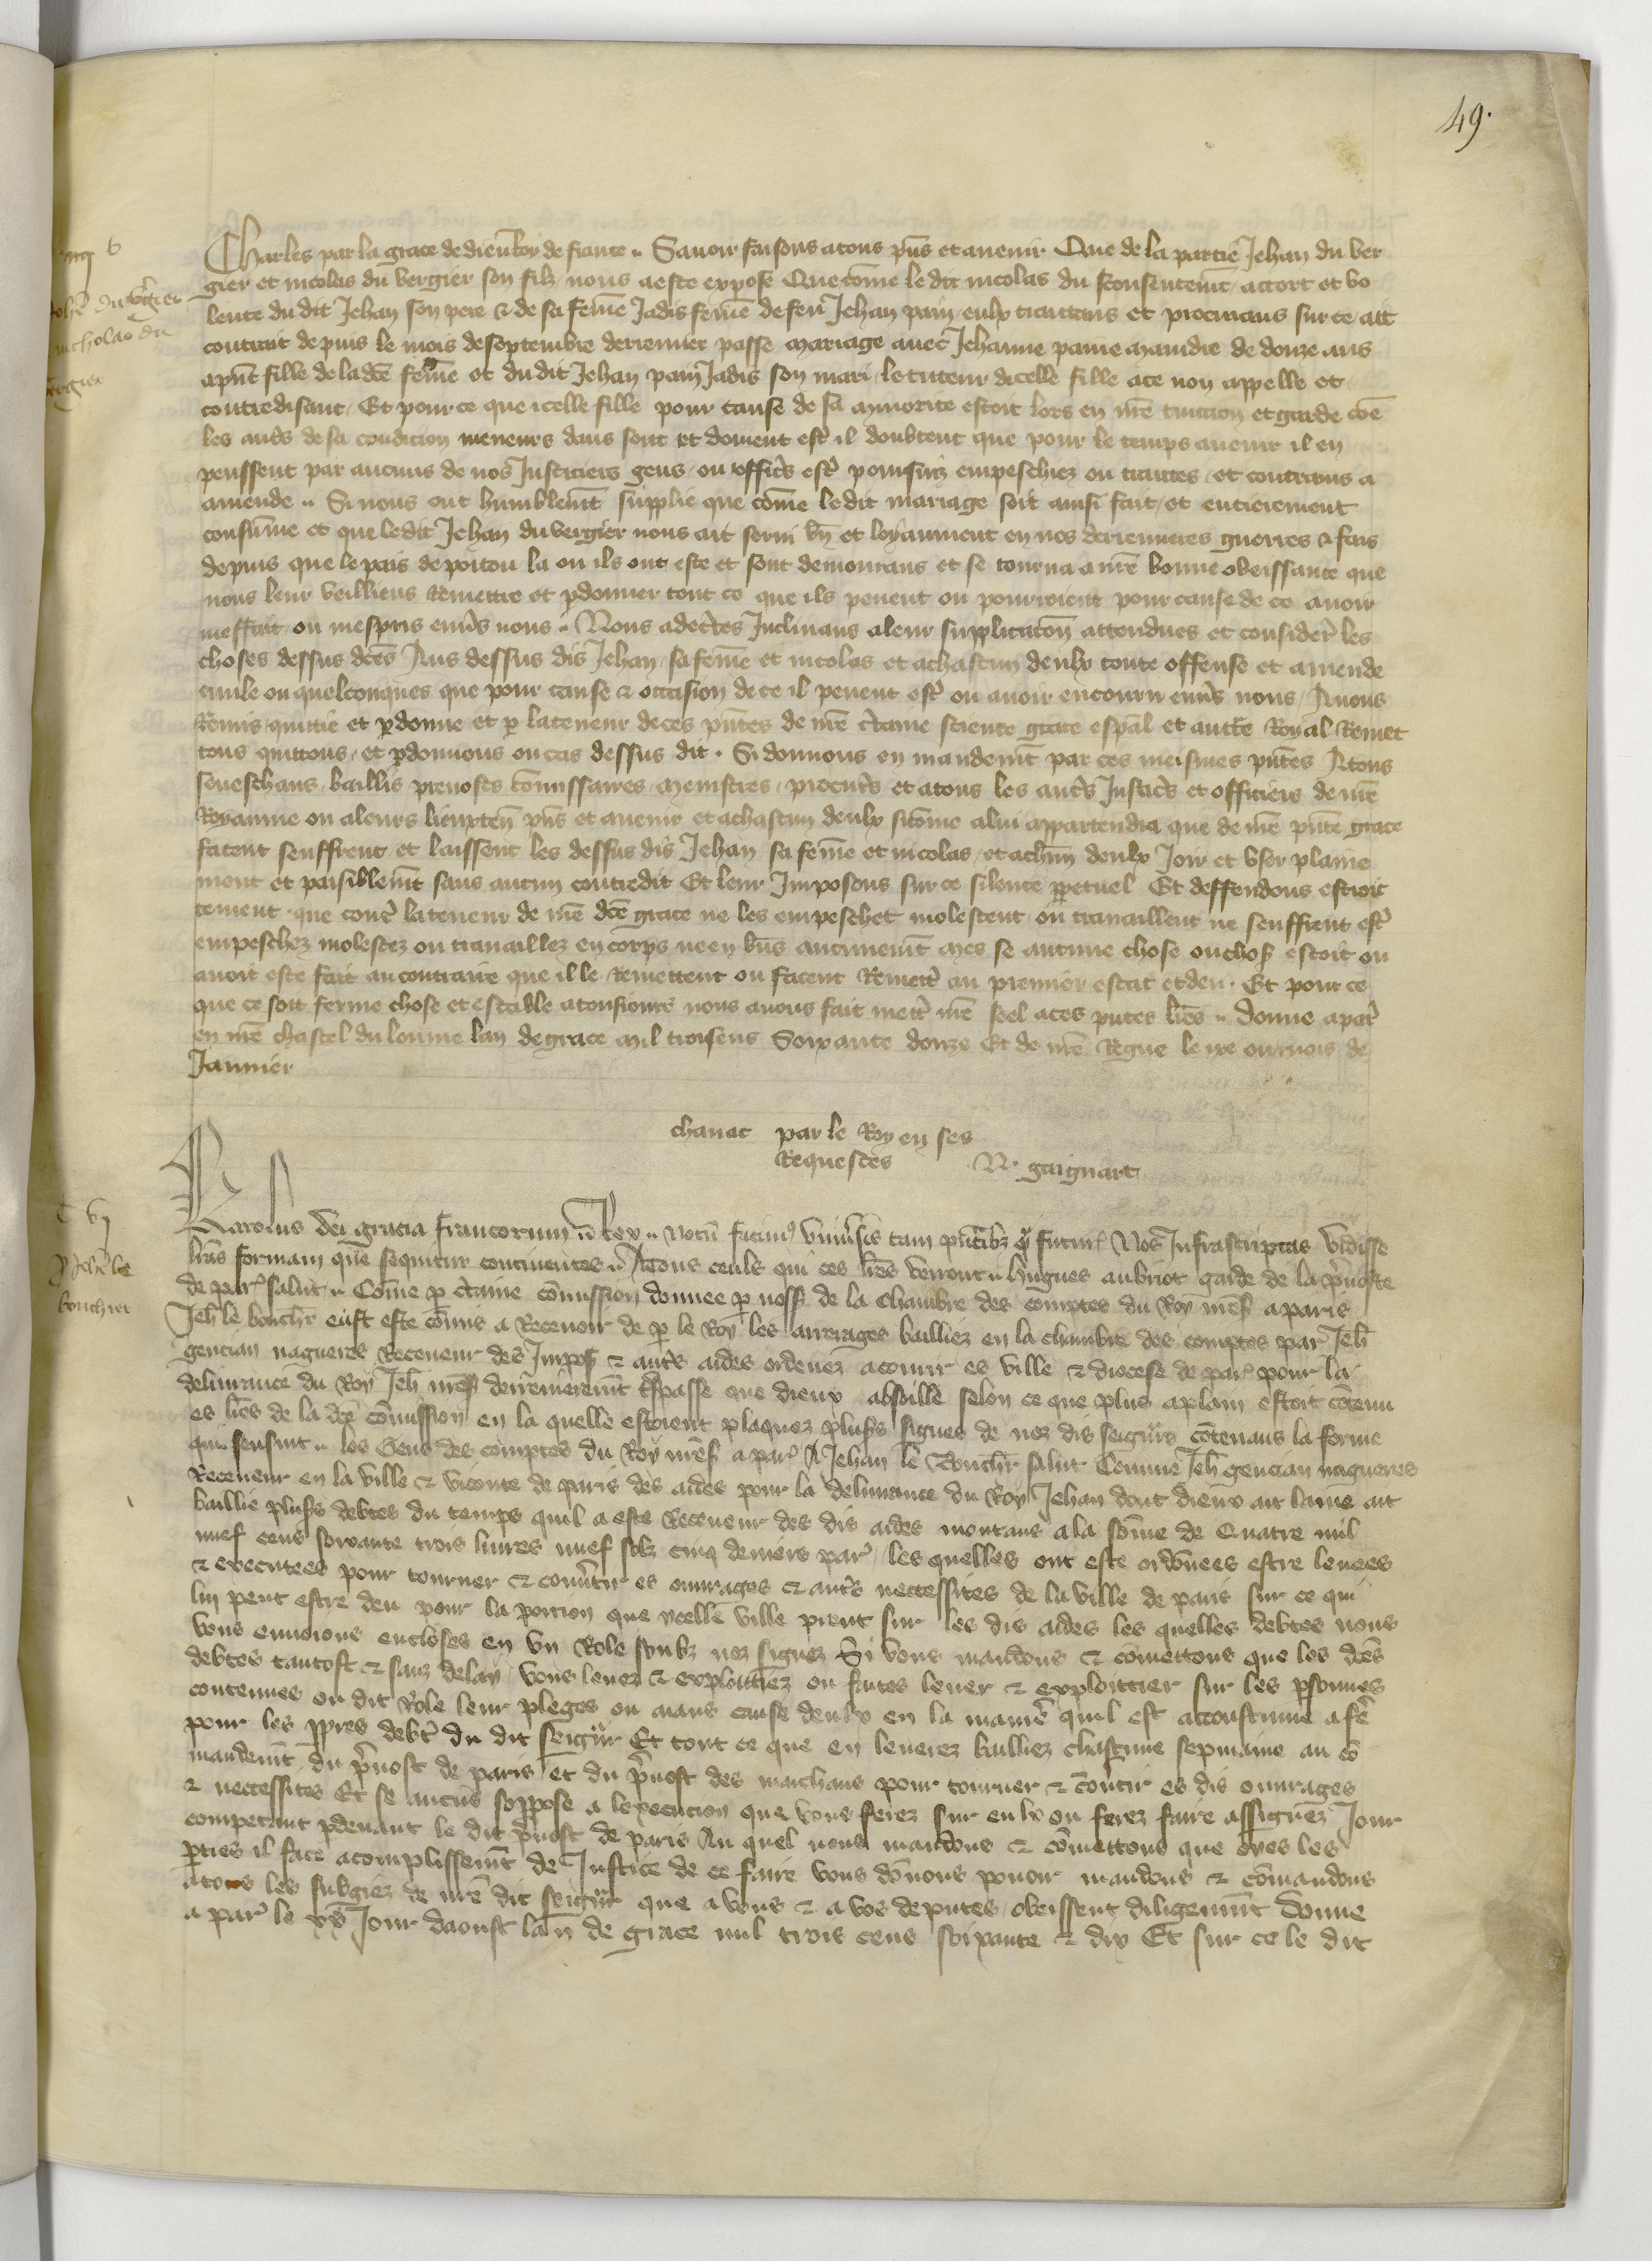 49.
Charles par la grace de dieu Roy de france. Savoir faisons a tous pñs et avenir Que de la partie Jehan du ver
gier et nicolas du vergier son filz nous a este expose Que cõme le dit nicolas du consentemt accort et vo
lente du dit Jehan son pere & de sa feme Jadis feme de feu Jehan pain eulx traittans et procurans sur ce ait
contrait depuis le mois de septembre derrenier passe mariage avec Jehanne paine maindre de douze ans
a pñt fille de la dce feme et du dit Jehan pain Jadis son mari le tuteur dicelle fille a ce non appelle et
contredisant Et pour ce que icelle fille pour cause de sa minorite estoit lors en nre tuicion et garde cõe
les autres de sa condicion meneurs dans sont et doivent estr il doubtent que pour le temps avenir il en
peussent par aucuns de nos Justiciers gens ou offic̃s estr poursuiz empeschiez ou traittes et contrains a
amende. Si nous ont humblemt supplie que cõme le dit mariage soit ainsi fait et entierement
consume et que le dit Jehan du vergier nous ait servi bñ et loyaument en nos derrenieres guerres & fais
depuis que le pais de poitou la ou ils ont este et sont demourans et se tourna a nre bonne obeissance que
nous leur veilliens remettre et pdonner tout ce que ils pevent ou pourroient pour cause de ce avoir
meffait ou mespris envs nous. Nous adectes Inclinans a leur supplicacon attendues et consider les
choses dessus dces Aus dessus dis Jehan sa feme et nicolas et a chascun deulx toute offense et amende
civile ou quelconques que pour cause & occasion de ce il pevent estr ou avoir encouru envs nous Avons
Remis quitte et pdonne et p la teneur de ces pñtes de nre ctaine science grace espal et aucte Royal Remet
tons quittons et pdonnons ou cas dessus dit. Si donnons en mandemt par ces meismes pñtes A tous
seneschaus baillis prevosts cõmissaires menistres procurs et a tous les autrs Justicrs et officiers de nre
Royaume ou a leurs lieuxten pñs et avenir et a chascun deulx si cõme a lui appartendra que de nre pñte grace
facent seuffrent et laissent les dessus dis Jehan sa feme et nicolas et a chun deulx Joir et user plaine
ment et paisiblemt sans aucun contredit Et leur Imposons sur ce silence ppetuel Et deffendons estroit
tement que contr la teneur de nre dce grace ne les empeschet molestent ou travaillent ne seuffrent estr
empeschez molestez ou travaillez en corps ne en biens aucunemt mes se aucune chose ou chos estoit ou
avoit este fait au contraire que il le remettent ou facent Remettr au premier estat et deu. Et pour ce
que ce soit ferme chose et estable a tousiours nous avons fait mettr nre seel a ces pñtes lres. Donne a par
en nre chastel du louvre lan de grace mil troisens Soixante douze Et de nre Regne le ixe ou mois de
Janvier
chanac par le Roy en ses
Requestes N. gaignart
Johe du vgier
nicholao du
vergier
Karolus dei gracia francorum Rex. Notu facim universis tam pñtibz q futur Nos Infrascriptas vidisse
lras formam que sequitur continentes. A tous ceuls qui ces lres verront hugues aubriot garde de la pvoste
de par salut. Cõme p ctaine cõmission donnee p noss de la chambre des comptes du Roy nres a paris
Jeh le bouchr eust este cõmis a Recevoir de p le Roy les arrerages bailliez en la chambre des comptes par Jeh
gencian nagueres Receveur des Impos & autrs aides ordenez a courir es ville & diocese de par pour la
delivrance du Roy Jeh nres derrenieremt trspasse que dieux absoille selon ce que plus a plain estoit cõtenu
es lres de la dce cõmission en la quelle estoient plaquez plusrs signes de noz dis seigneurs cõtenans la forme
qui sensuit. les Gens des comptes du Roy nres a par A Jehan le Bouchr salut Comme Jeh gencian nagueres
Receveur en la ville & viconte de paris des aides pour la delivrance du Roy Jehan dont dieux ait lame ait
baillie plusrs debtes du temps quil a este Receveur des dis aides montans a la sõme de Quatre mil
nuef cens soixante trois livres nuef solz cinq deniers par les quelles ont este ordõnees estre levees
& executees pour tourner & convrtir es ouvrages & autrs neccessites de la ville de paris sur ce qui
lui peut estre deu pour la porcion que ycelle ville prent sur les dis aides les quelles debtes nous
vous envoions encloses en un Role soubz noz signez Si vous mandons & cõmettons que les dces
debtes tantost & sanz delay vous levez & exploittiez ou faites lever & exploittier sur les psonnes
contenues ou dit role leur pleges ou aians cause deulx en la manier quil est acoustume a fr
pour les ppres debtr du dit seigneur Et tout ce que en leverez bailliez chascune sepmaine au cõ
mandemt du pvost de paris et du pvost des marchans pour tourner & cõvrtir es dis ouvrages
& neccessites Et se aucuns soppose a lexecucion que vous ferez sur eulx ou ferez faire assignez Jour
competant pdevant le dit pvost de paris Au quel nous mandons & cõmettons que oyes les
pties il face acomplissemt de Justice de ce faire vous dõnons povoir mandons & cõmandons
a tous les subgiez de nre dit seigneur que a vous & a vos deputes obeissent diligemmt Donne
a par le xxe Jour daoust lan de grace mil trois cens soixante & dix Et sur ce le dit
C vj
P Johe le
bouchier